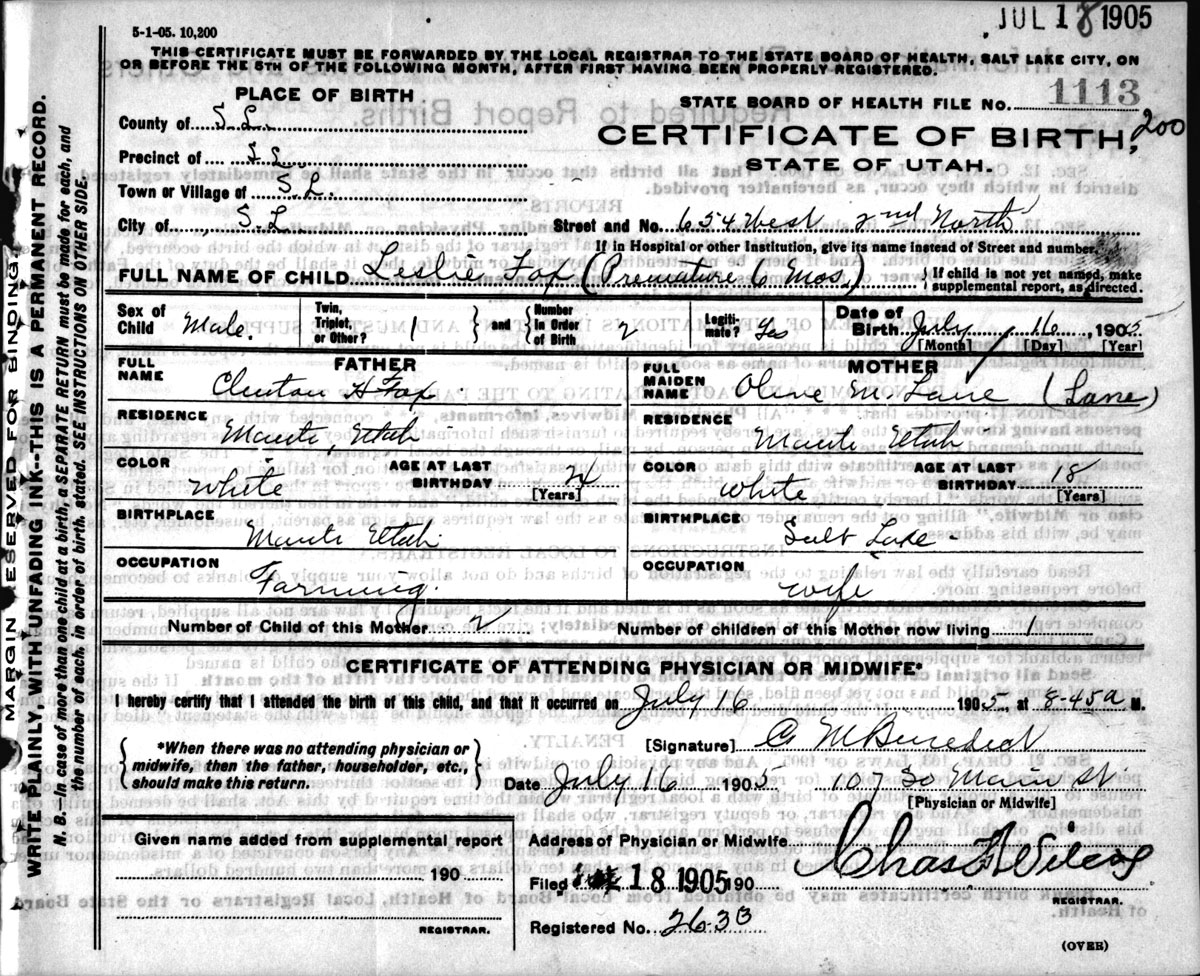 JUL 18 1905
5-1-05. 10,200
THIS CERTIFICATE MUST BE FORWARDED BY THE LOCAL REGISTRAR TO THE STATE BOARD OF HEALTH, SALT LAKE CITY, ON
OR BEFORE THE 5TH OF THE FOLLOWING MONTH, AFTER FIRST HAVING BEEN PROPERLY REGISTERED.
PLACE OF BIRTH
STATE BOARD OF HEALTH FILE NO. 1113
200
County of S. L.
CERTIFICATE OF BIRTH,
Precinct of S. L.
STATE OF UTAH.
Town or Village of S. L.
City of S. L. Street and No. 654 West 2nd North
If in Hospital or other Institution, give its name instead of Street and number.
FULL NAME OF CHILD Leslie Fox (Premature 6 Mos.) { If child is not yet named, make
supplemental report, as directed.
Sex of Child Male. Twin, Triplet, or Other? 1 } and { Number In Order of Birth 2 Legiti-mate? Yes Date of Birth July 16, 1905
[Month] [Day] [Year]
FATHER
FULL NAME Clinton H Fox
RESIDENCE
Manti, Utah
COLOR White AGE AT LAST BIRTHDAY 24
[Years]
BIRTHPLACE
Manti Utah
OCCUPATION
Farming.
MOTHER
FULL MAIDEN NAME Olive M. Lane (Lane)
RESIDENCE
Manti Utah
COLOR White AGE AT LAST BIRTHDAY 18
[Years]
BIRTHPLACE
Salt Lake
OCCUPATION
Wife
Number of Child of this Mother 2 Number of children of this Mother now living 1
CERTIFICATE OF ATTENDING PHYSICIAN OR MIDWIFE*
I hereby certify that I attended the birth of this child, and that it occurred on July 16 1905, at 8-45 a M.
*When there was no attending physician or
midwife, then the father, householder, etc.,
should make this return.
[Signature] C M Benedict
Date July 16 1905 107 So Main St.
[Physician or Midwife]
Given name added from supplemental report
190
REGISTRAR.
Address of Physician or Midwife
Filed 18 1905 190 Chas F Wilcox
REGISTRAR.
Registered No. 263B
(OVER)
MARGIN RESERVED FOR BINDING.
WRITE PLAINLY, WITH UNFADING INK--THIS IS A PERMANENT RECORD.
N. B.—In case of more than one child at a birth, a SEPARATE RETURN must be made for each, and
the number of each, in order of birth, stated. SEE INSTRUCTIONS ON OTHER SIDE.